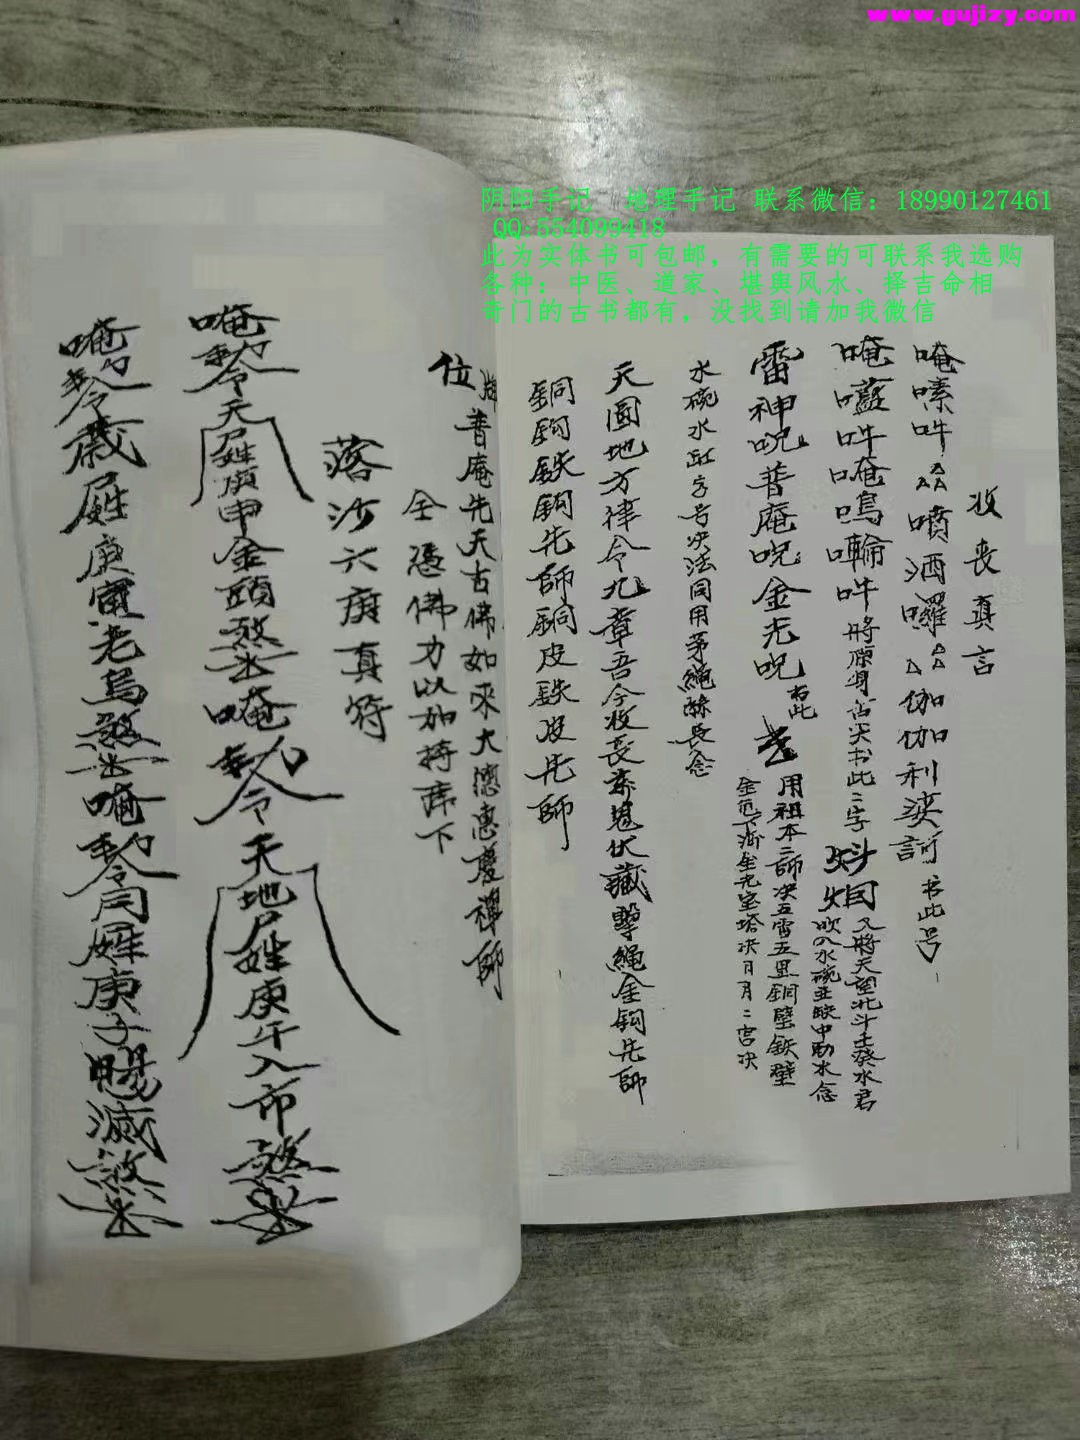 www.gujizy.com
阴阳手记 地理手记 联系微信：18990127461
QQ:554099418
此为实体书可包邮，有需要的可联系我选购
各种：中医、道家、堪舆风水、择吉命相
奇门的古书都有，没找到请加我微信
收丧真言
唵嗉吽噴洒囉伽伽利渶訶书此号
唵吽唵嗚吽將原身舌尖书此二字
又將天罡北斗壬癸水君
吹入水碗中助水念
雷神呪普庵呪金光呪右此
用祖本二師决五雷五里銅壁鉄壁
金九室塔决日月二宮决
水碗水缸字号决法同用茅繩念
天圓地方律令九章吾今收丧伏藏擊繩金鈎先師
銅鈎鉄鈎先師銅皮鉄皮先師
位牌普庵先天古佛如來大德惠慶禅師
全憑佛力以如持席下
落沙六庚真符
唵天尸姓庚申金頭煞唵令天地尸姓庚午入市煞
唵歲庚寅老烏煞唵同庚子滅煞